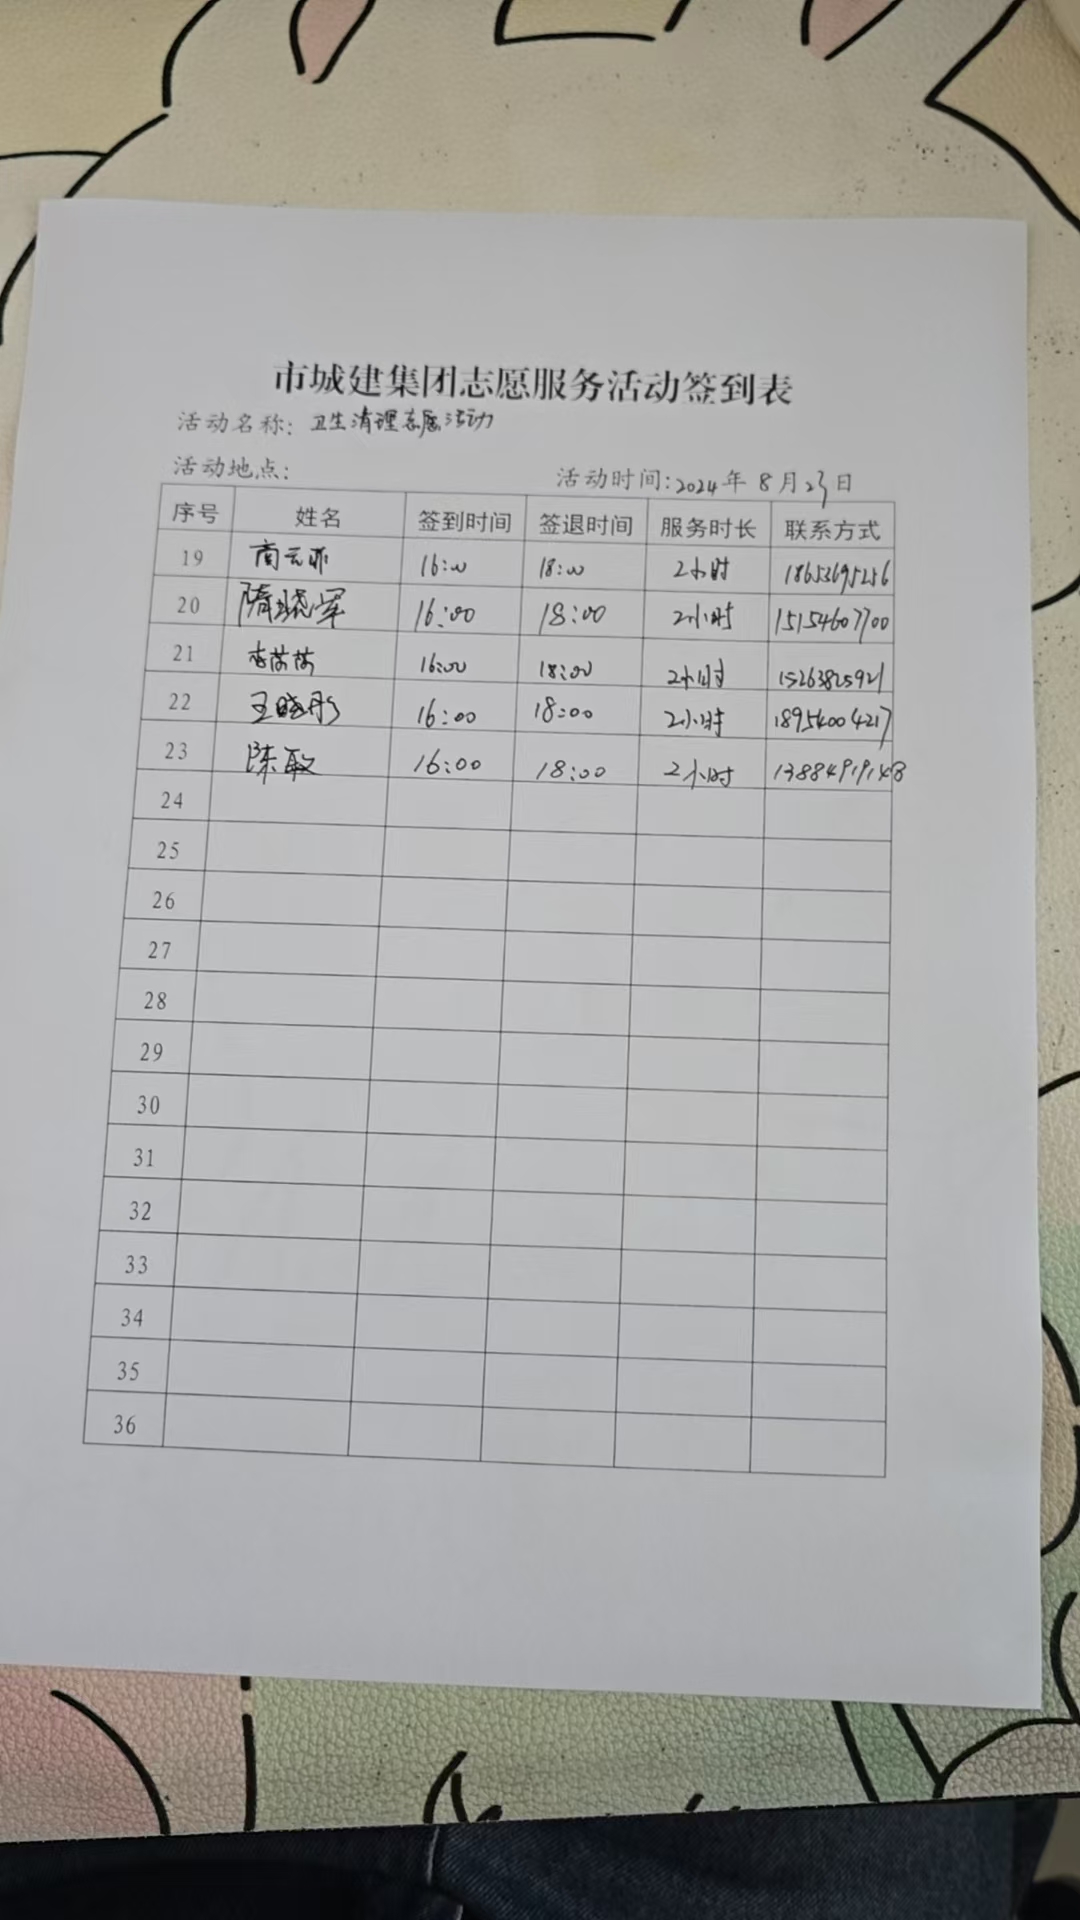 市城建集团志愿服务活动签到表
活动名称: 卫生清理志愿活动
活动地点:
活动时间:2024年 8月23日
序号 姓名 签到时间 签退时间 服务时长 联系方式
19 商云 16:00 18:00 2小时 18653695256
20 隋晓军 16:00 18:00 2小时 15154607700
21 李茜茜 16:00 18:00 2小时 15263825921
22 王晓彤 16:00 18:00 2小时 18954004217
23 陈敏 16:00 18:00 2小时 13884919148
24
25
26
27
28
29
30
31
32
33
34
35
36